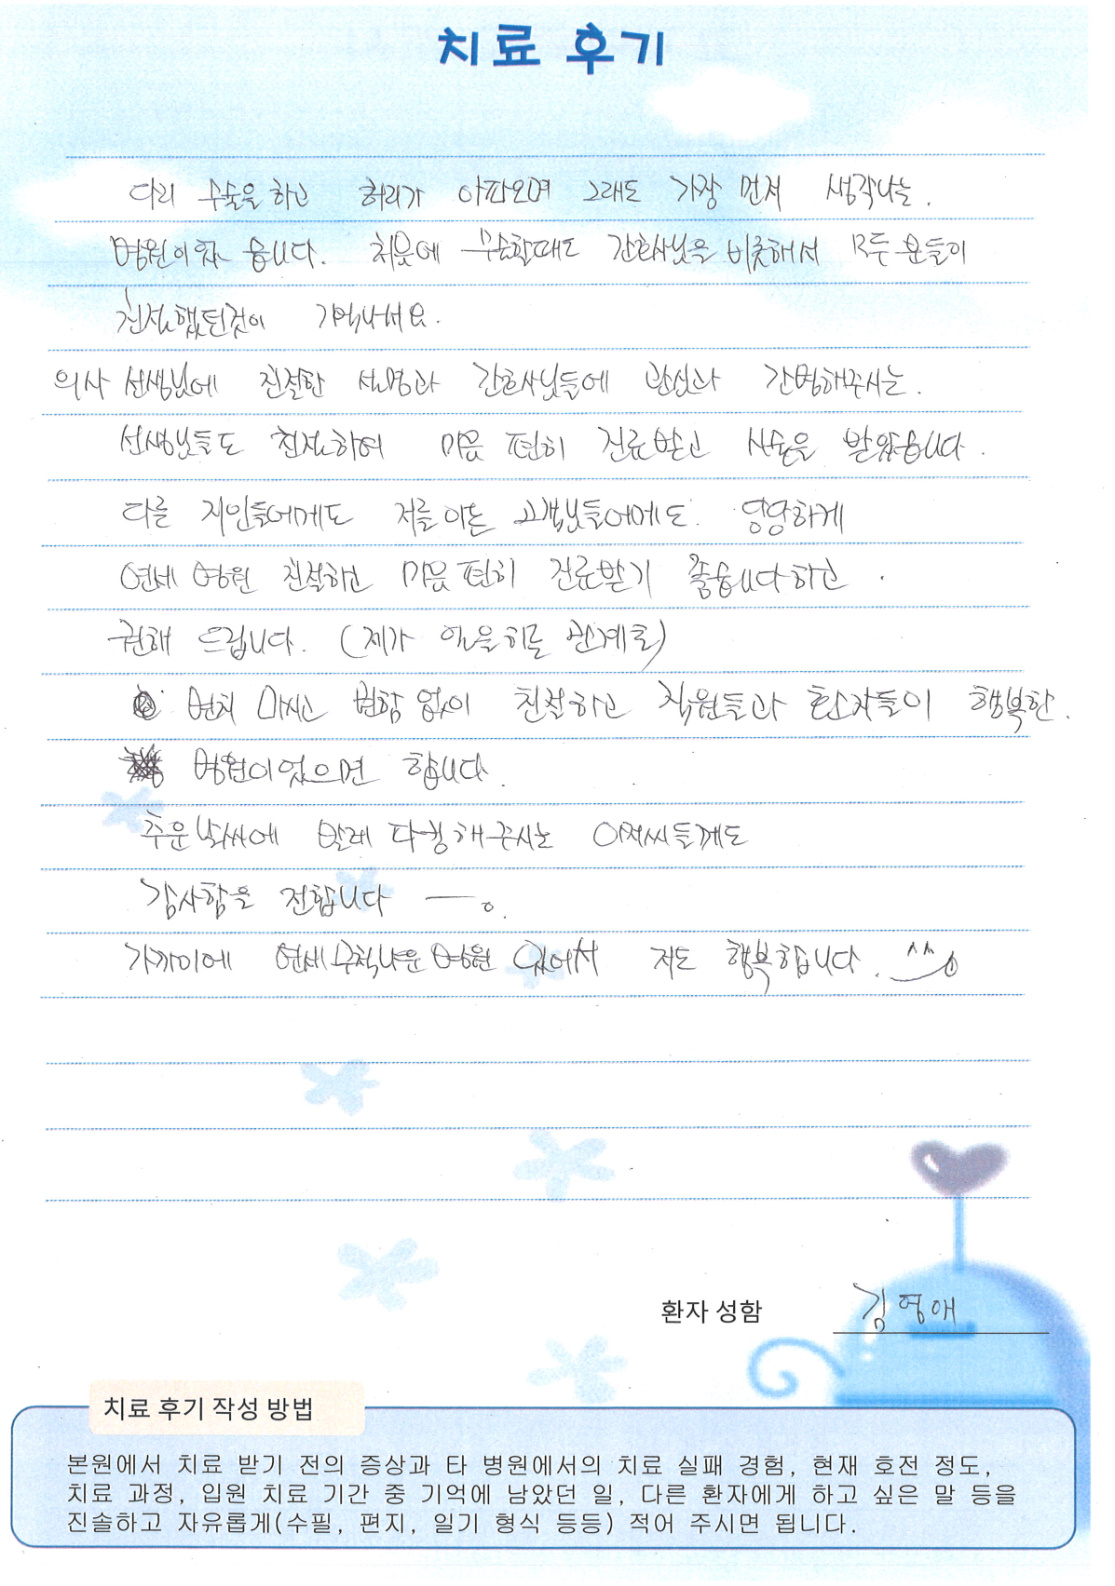 치료 후기
다리 수술을 하고 허리가 아파오며 그래도 가장 먼저 생각나는.
병원이 와 읍니다. 처음에 수술할때도 간호사님을 비롯해서 모두 분들이
친절했던것이 기억나네요.
의사 선생님에 친절한 설명과 간호사님들에 관심과 간병해주시는.
선생님들도 친절하여 마음 편히 진료받고 시술을 받았읍니다.
다른 지인들에게도 저를 아는 고객님들에게도. 당당하게
연세 병원 친절하고 마음 편히 진료받기 좋읍니다하고.
권해 드립니다. (제가 하는 관계로)
변치 마시고 변함 없이 친절하고 직원들과 환자들이 행복한.
병원이었으면 합니다.
추운 날씨에 발레 다정해주시는 아저씨들께도
감사함을 전합니다 ―。
가까이에 연세 구척나은 병원 있어서 저도 행복합니다. ^^
환자 성함 김영애
치료 후기 작성 방법
본원에서 치료 받기 전의 증상과 타 병원에서의 치료 실패 경험, 현재 호전 정도,
치료 과정, 입원 치료 기간 중 기억에 남았던 일, 다른 환자에게 하고 싶은 말 등을
진솔하고 자유롭게(수필, 편지, 일기 형식 등등) 적어 주시면 됩니다.